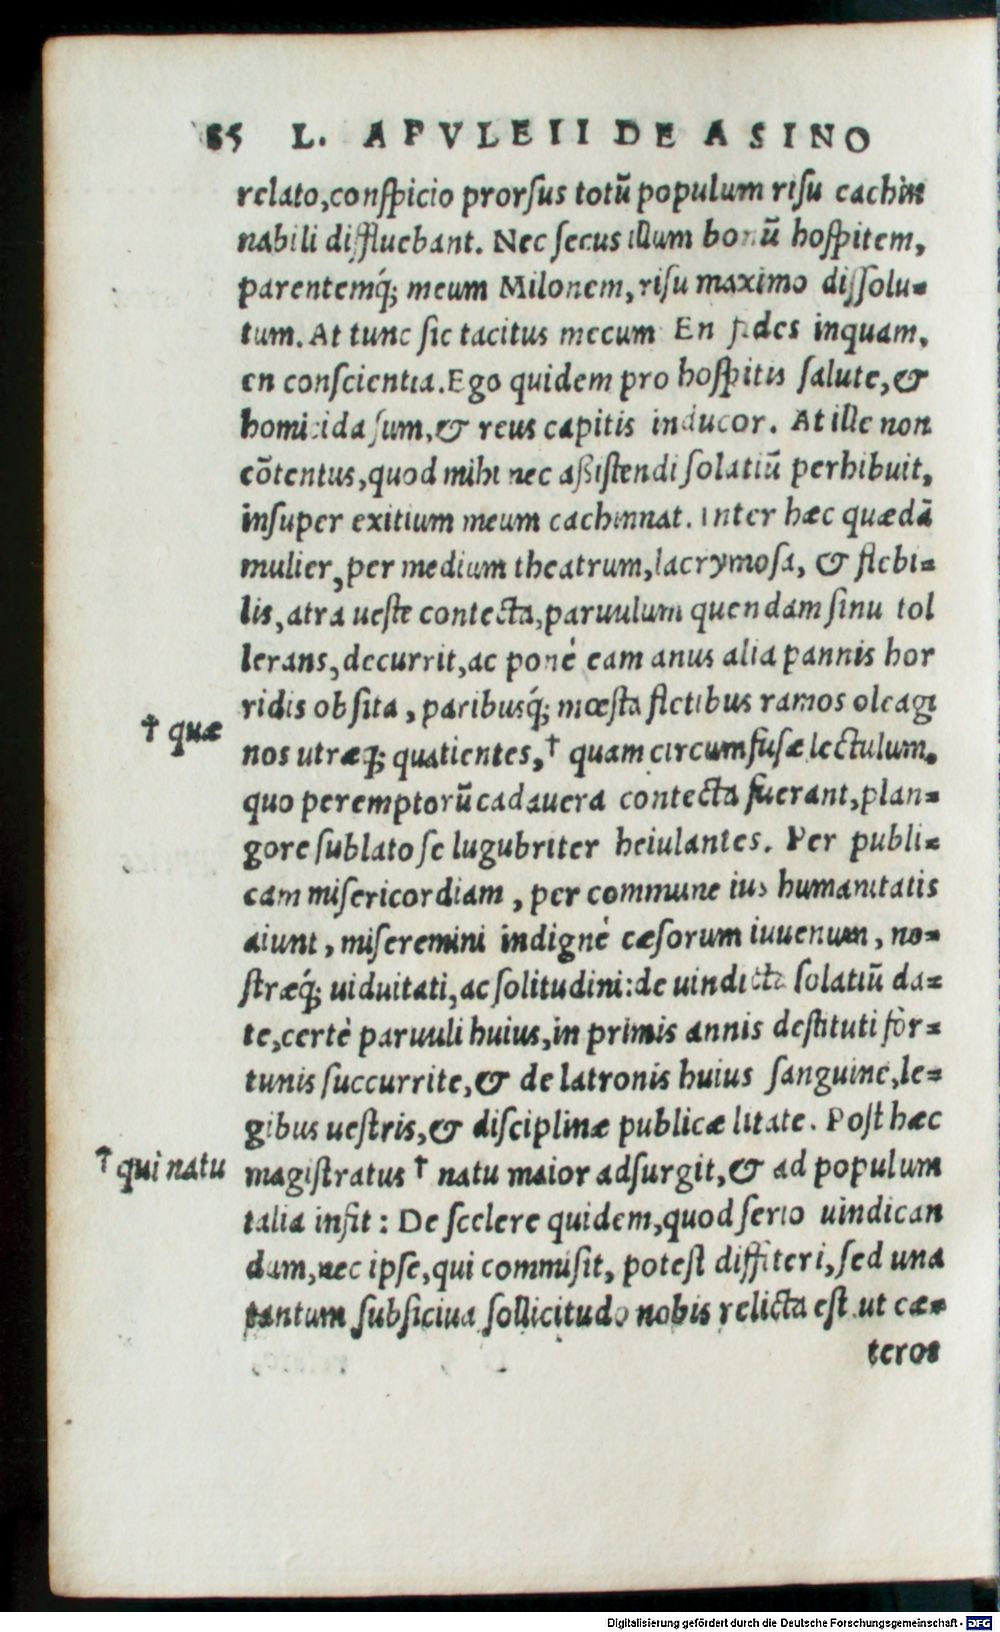 85 L. APVLEII DE ASINO
relato,conſpicio prorſus totũ populum riſu cachin
nabili diffluebant. Nec ſecus illum bonũ hoſpitem,
parentemq́; meum Milonem,riſu maximo diſſolu=
tum. At tunc ſic tacitus mecum En fides inquam,
en conſcientia.Ego quidem pro hoſpitis ſalute,&
homicida ſum,& reus capitis inducor. At ille non
cõtentus,quod mihi nec aßiſtendi ſolatiũ perhibuit,
inſuper exitium meum cachinnat. Inter hæc quædã
mulier,per medium theatrum,lacrymoſa, & flebi=
lis,atra ueſte contecta,paruulum quendam ſinu tol
lerans,decurrit,ac ponè eam anus alia pannis hor
ridis obſita, paribusq́; mœſta fletibus ramos oleagi
† quæ
nos utræq; quatientes,† quam circumfuſæ lectulum.
quo peremptorũ cadauera contecta fuerant,plan=
gore ſublato ſe lugubriter heiulantes. Per publi=
cam miſericordiam, per commune ius humanitatis
aiunt, miſeremini indignè cæſorum iuuenum, no=
ſtræq́; uiduitati,ac ſolitudini:de uindicta ſolatiũ da=
te,certè paruuli huius,in primis annis deſtituti for=
tunis ſuccurrite,& de latronis huius ſanguine,le=
gibus ueſtris,& diſciplinæ publicæ litate. Poſt hæc
† qui natu
magiſtratus † natu maior adſurgit,& ad populum
talia infit: De ſcelere quidem,quod ſerio uindican
dum,nec ipſe,qui commiſit, poteſt diffiteri,ſed una
tantum ſubſiciua ſollicitudo nobis relicta eſt.ut cæ=
teros
Digitalisierung gefördert durch die Deutsche Forschungsgemeinschaft - DFG